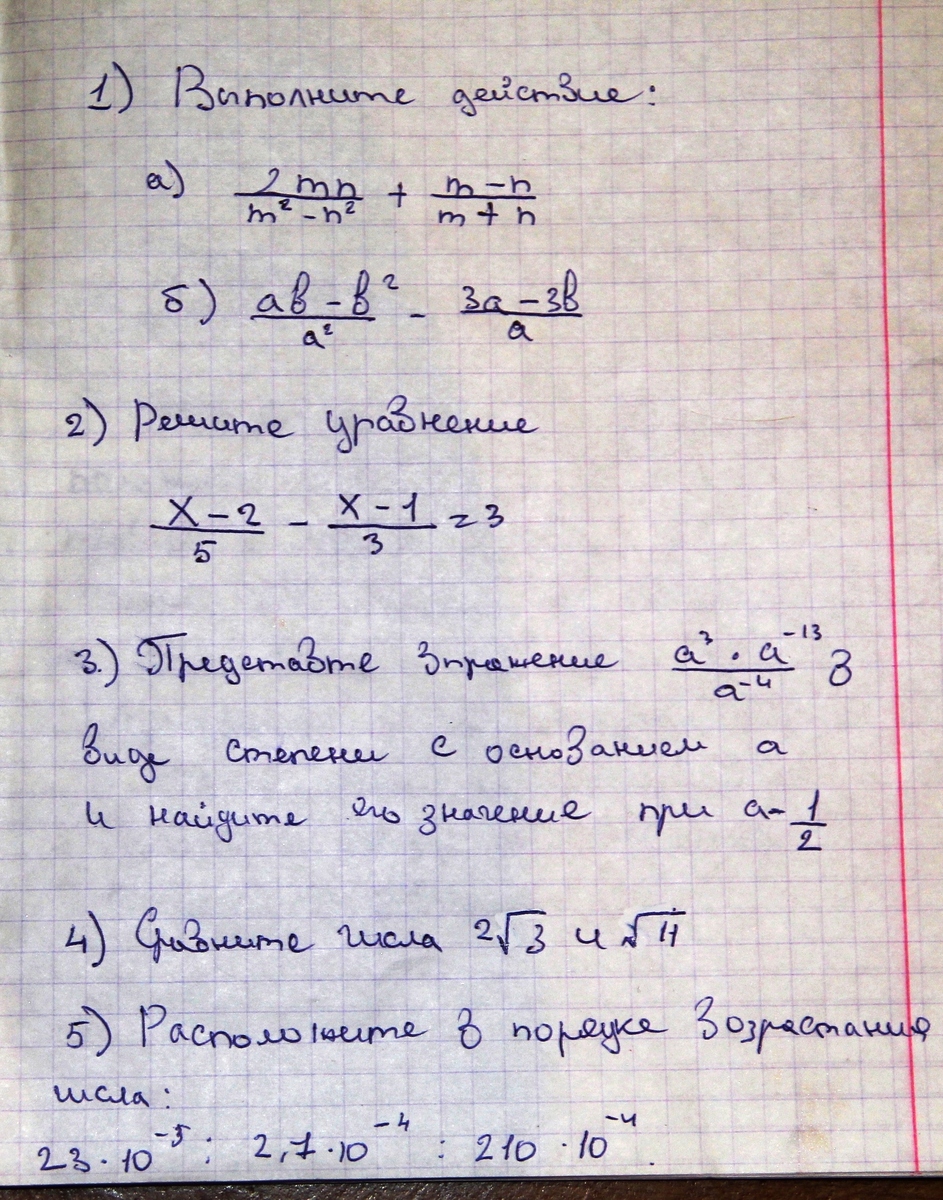 1) Выполните действие:
а) 2mn/(m² - n²) + (m - n)/(m + n)
б) (ab - b²)/a² - (3a - 3b)/a
2) Решите уравнение
(x - 2)/5 - (x - 1)/3 = 3
3.) Представте выражение (a³ · a⁻¹³)/a⁻⁴ в
виде степени с основанием a
и найдите его значение при a = 1/2
4) Сравните числа 2√3 и √11
5) Расположите в порядке возрастания
числа:
23 · 10⁻⁵ ; 2,7 · 10⁻⁴ : 210 · 10⁻⁴.